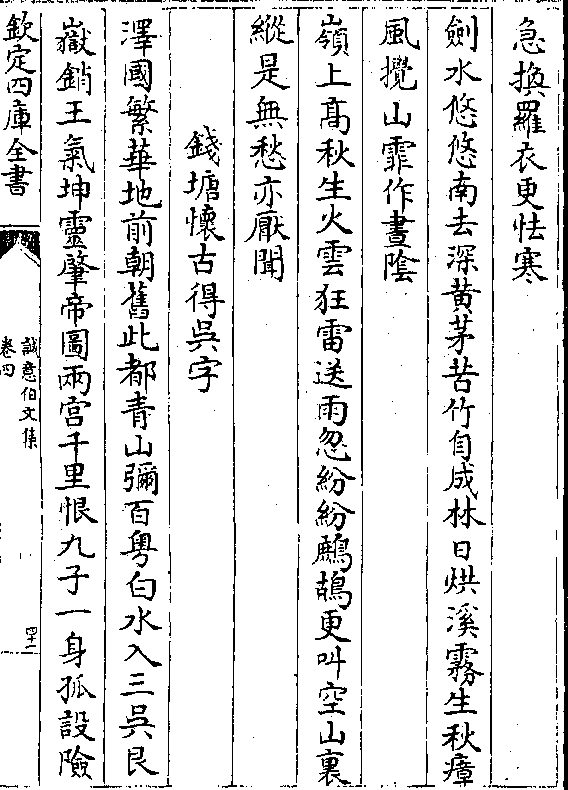 急換羅衣更怯寒
劍水悠悠南去深黄茅苦竹自成林日烘溪霧生秋瘴
風攪山霏作晝隂
嶺上髙秋生火雲狂雷送雨忽紛紛鷓鴣更呌空山裏
縱是無愁亦厭聞
錢塘懷古得吳字
澤國繁華地前朝舊此都青山彌百粤白水入三吳艮
嶽銷王氣坤靈肇帝圖兩宫千里恨九子一身孤設險
欽定四庫全書
誠意伯文集
卷四
四十二